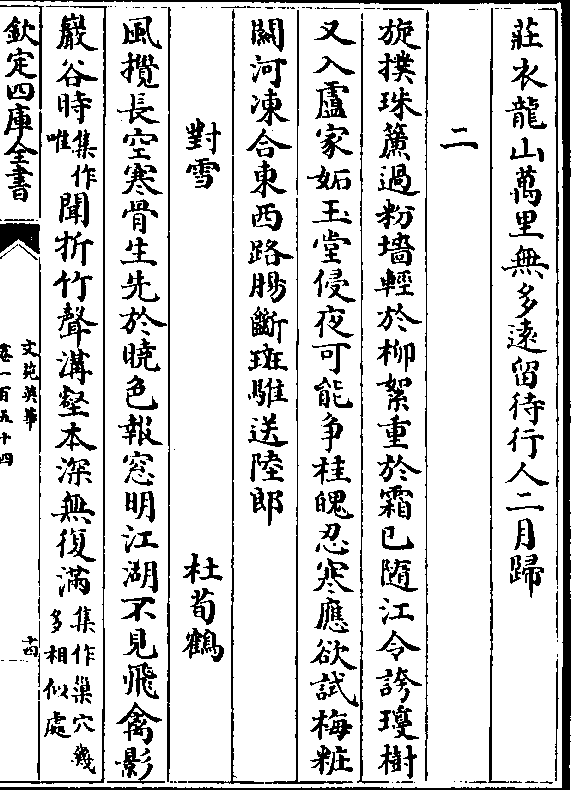 莊衣龍山萬里無多遠留待行人二月歸
二
旋撲珠簾過粉墻輕於柳絮重於霜已隨江令誇瓊樹
又入盧家妬玉堂侵夜可能争桂魄忍寒應欲試梅粧
關河凍合東西路腸斷斑騅送陸郎
對雪 杜荀鶴
風攪長空寒骨生先於曉色報窓明江湖不見飛禽影
巖谷時集作唯聞折竹聲溝壑本深無復滿集作巢穴幾多相似處
欽定四庫全書
文苑英華
卷一百五十四
十四